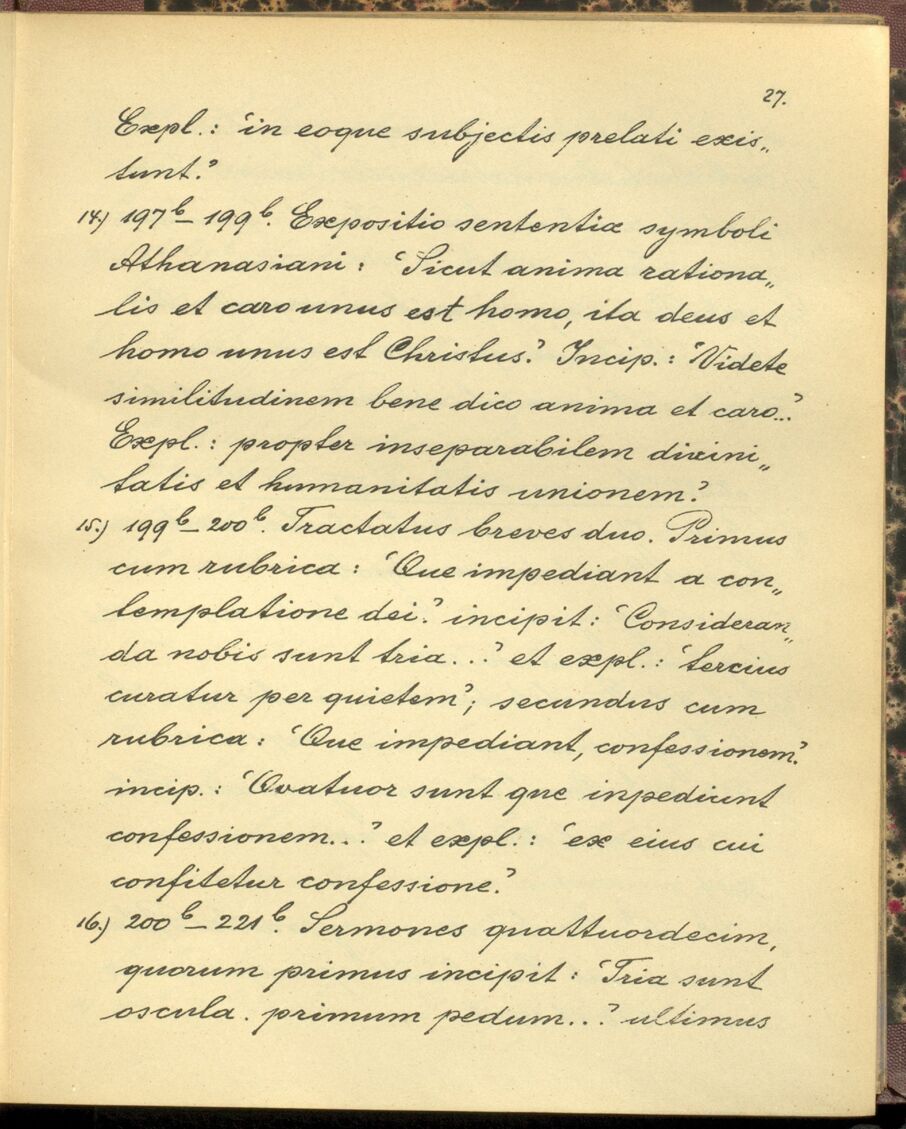 27.
Expl.: 'in eoque subjectis prelati exis„
tunt.'
14.) 197ᵇ–199ᵇ. Expositio sententiæ symboli
Athanasiani: 'Sicut anima rationa„
lis et caro unus est homo, ita deus et
homo unus est Christus.' Incip.: 'Videte
similitudinem bene dico anima et caro...'
Expl.: propter inseparabilem divini„
tatis et humanitatis unionem.'
15.) 199ᵇ–200ᵇ. Tractatus breves duo. Primus
cum rubrica: 'Que impediant a con„
templatione dei.' incipit: 'Consideran„
da nobis sunt tria...' et expl.: 'tercius
curatur per quietem'; secundus cum
rubrica: 'Que impediant, confessionem.'
incip.: 'Qvatuor sunt que inpediunt
confessionem...' et expl.: 'ex eius cui
confitetur confessione.'
16.) 200ᵇ–221ᵇ. Sermones quattuordecim,
quorum primus incipit: 'Tria sunt
oscula. primum pedum...' ultimus